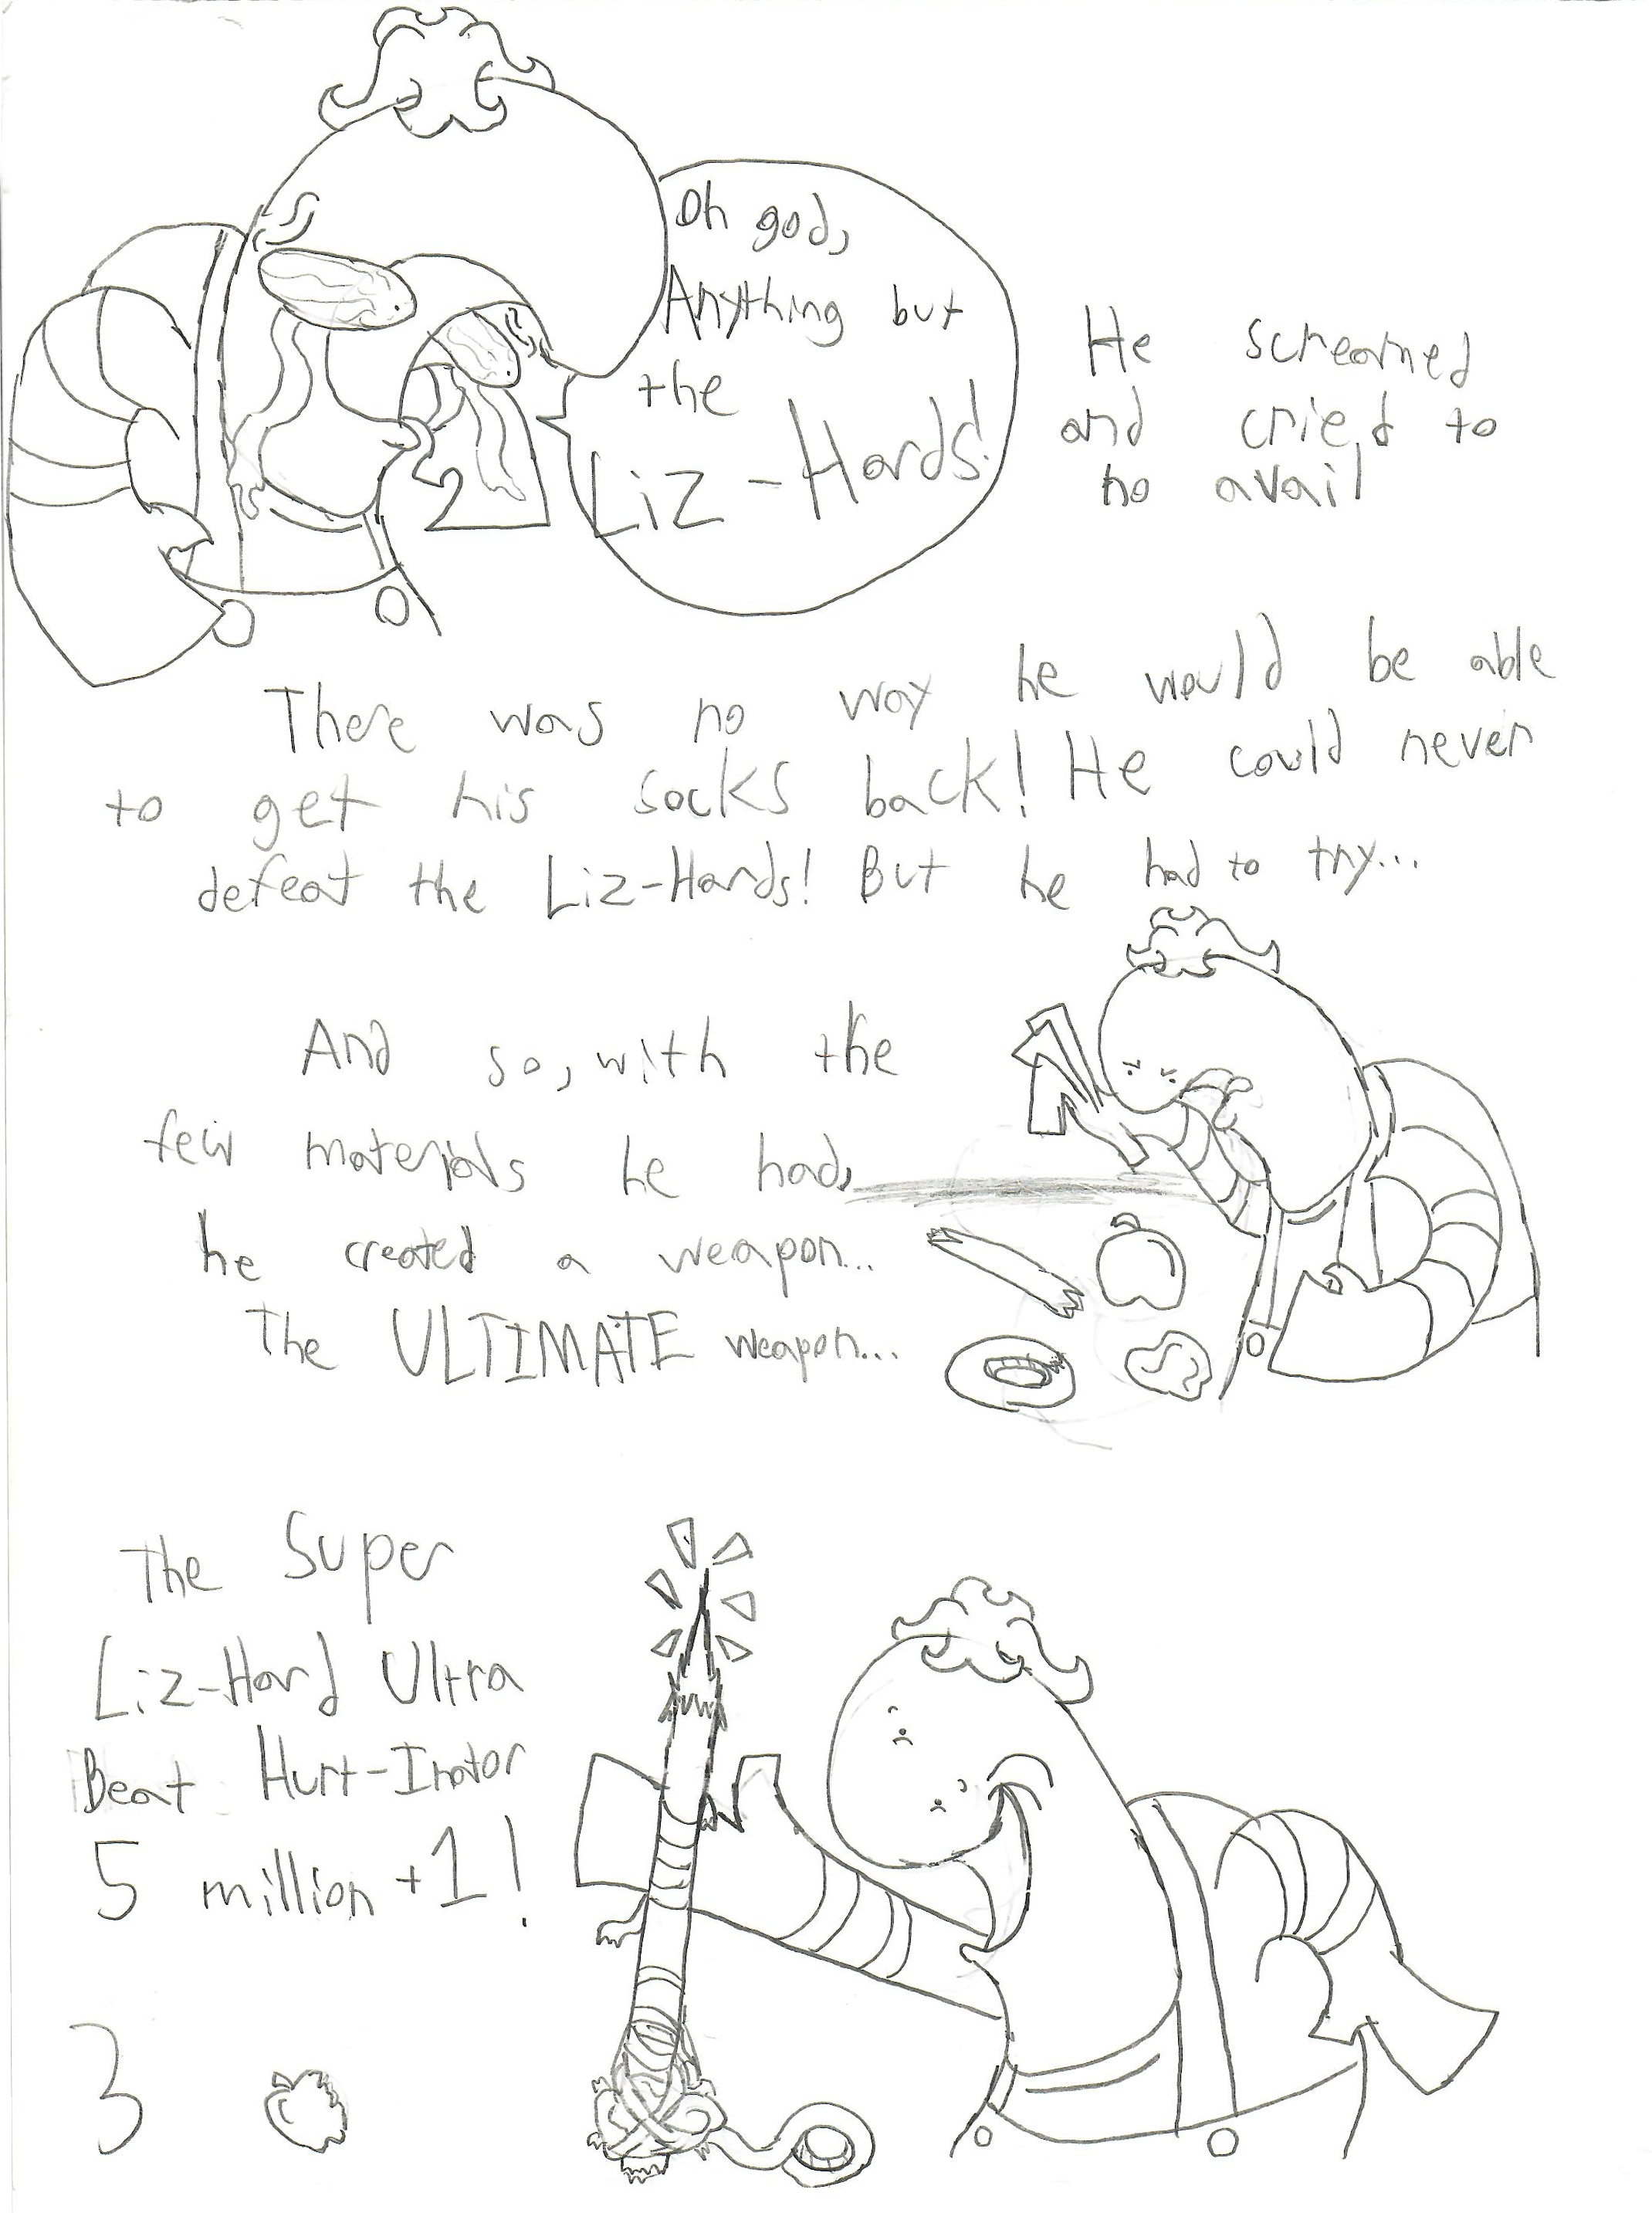 Oh god,
Anything but
the
Liz-Hards!
He screamed
and cried to
no avail
There was no way he would be able
to get his socks back! He could never
defeat the Liz-Hards! But he had to try...
And so, with the
few materials he had,
he created a weapon...
The ULTIMATE weapon...
The Super
Liz-Hard Ultra
Beat Hurt-Inator
5 million +1!
3